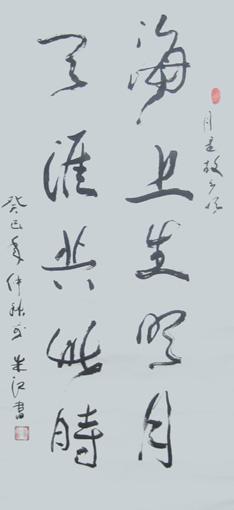 月是故乡明
海上生明月
天涯共此時
癸巳年仲秋 朱 書